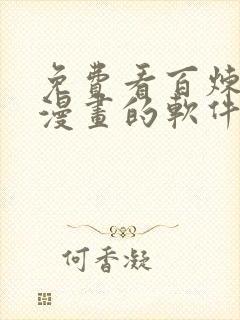 免費看百煉
漫畫的軟件
何香凝